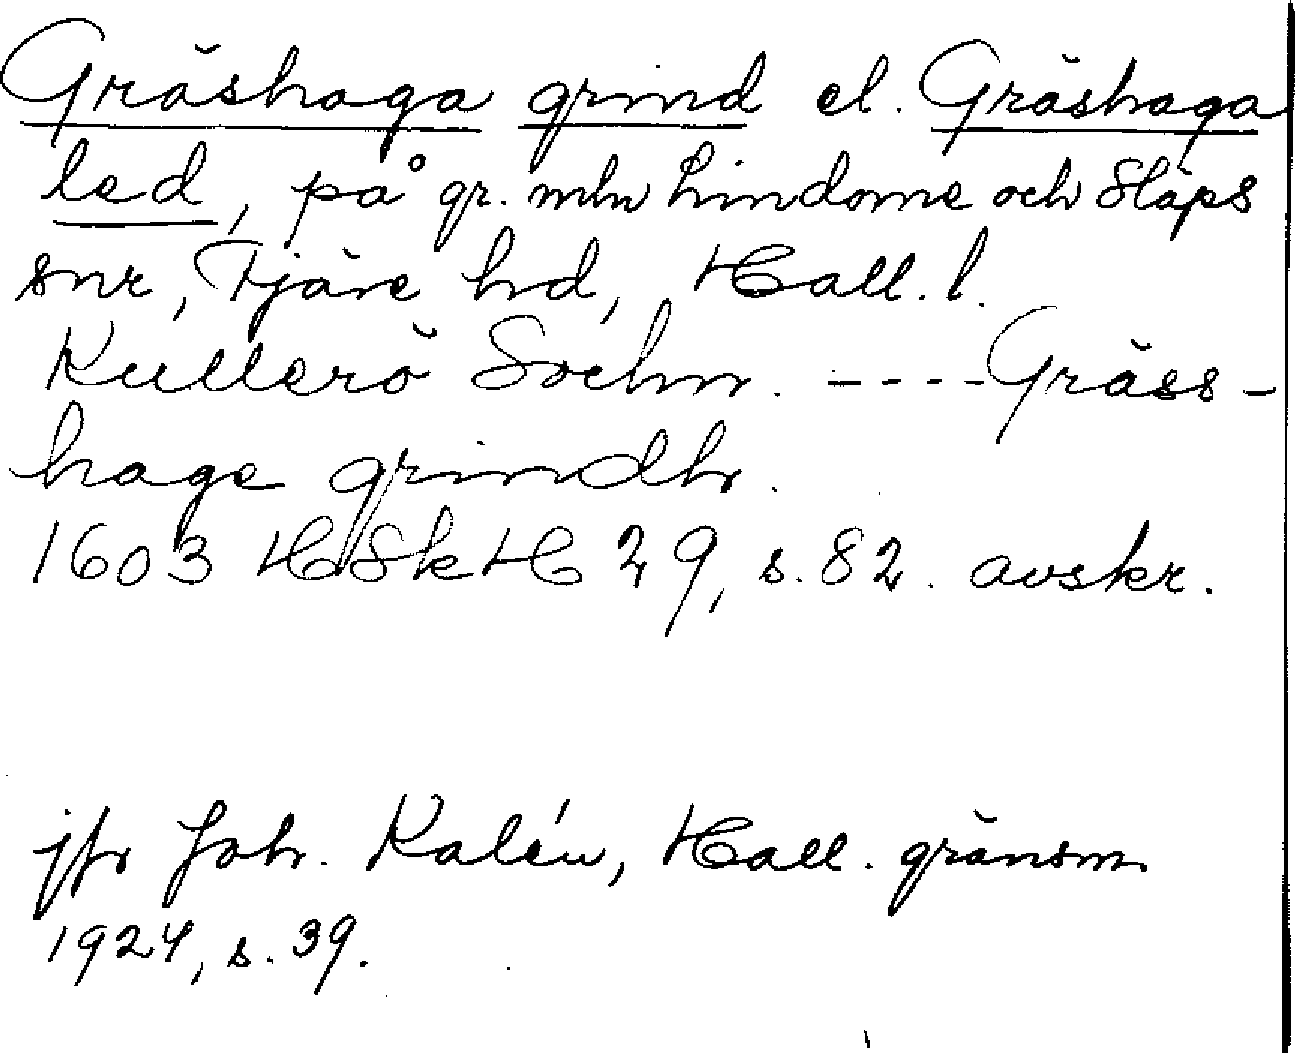 Gräshaga grind el. Gräshaga
led, på gr. mln Lindome och Släps
snr, Fjäre hd, Hall. l.
Kullerö Sochn. ---- Gräss-
hage grindh.
1603 HSkH 29, s. 82. avskr.
jfr Joh. Kalén, Hall. gränsm.
1924, s. 39.